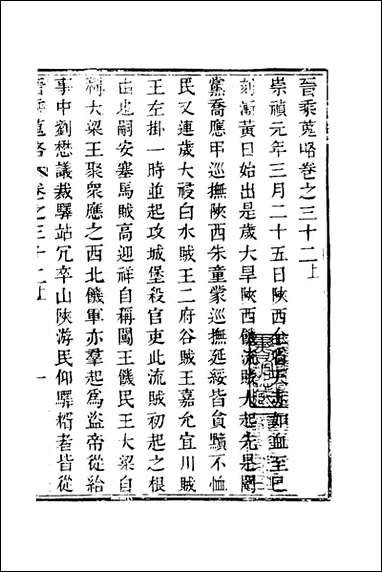 晉乘蒐略卷之三十二上
崇禎元年三月二十五日陝西全省天赤如血至巳
刻漸黃日始出是歲大旱陝西饑流賊大起先是閹
黨喬應甲巡撫陝西朱童蒙巡撫延綏皆貪黷不恤
民又連歲大祲白水賊王二府谷賊王嘉允宜川賊
王左掛一時並起攻城堡殺官吏此流賊初起之根
由也嗣安塞馬賊高迎祥自稱闖王饑民王大梁自
稱大梁王聚衆應之西北饑軍亦羣起爲盜帝從給
事中劉懋議裁驛站冗卒山陝游民仰驛糈者皆從
晉乘蒐略 卷之三十二上 一